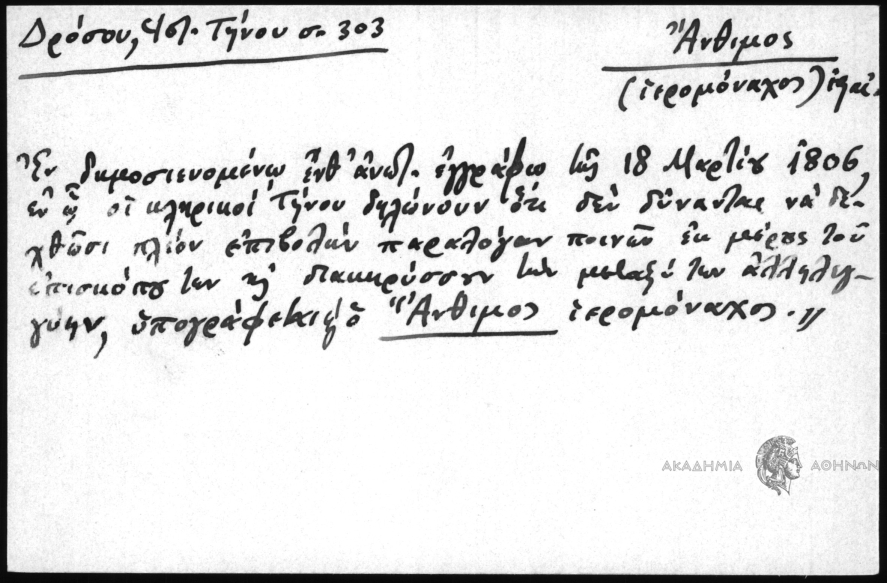 Δρόσου, Ἱστ. Τήνου σ. 303
Ἄνθιμος
(ἱερομόναχος)
Ἐν δημοσιευομένῳ ἔνθ' ἀνωτ. ἐγγράφῳ τῆς 18 Μαρτίου 1806,
ἐν ᾧ οἱ κληρικοί Τήνου δηλώνουν ὅτι δέν δύνανται νά δε-
χθῶσι πλέον ἐπιβολήν παραλόγων ποινῶν ἐκ μέρους τοῦ
ἐπισκόπου των κ̀ διακηρύσσουν τήν μεταξύ των ἀλληλεγ-
γύην, ὑπογράφεται κ̀ ὁ Ἄνθιμος ἱερομόναχος. //
ΑΚΑΔΗΜΙΑ ΑΘΗΝΩΝ